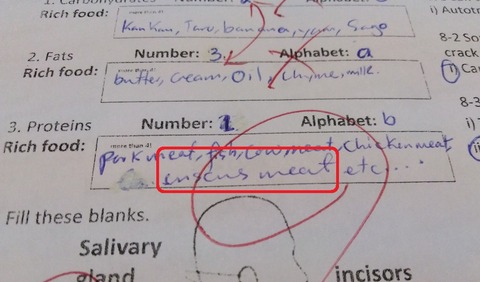 1. Carbohydrates
Rich food: more than 4!
Kaukau, Taro, banana, yam, Sago
2. Fats Number: 3. Alphabet: a
Rich food: more than 4!
butter, cream, Oil, milk.
3. Proteins Number: 1 Alphabet: b
Rich food: more than 4!
Pork meat, fish, cow meat, chicken meat,
meat etc....
Fill these blanks.
Salivary
gland
incisors
i) Autotr
8-2 So
crack
i) Can
8-3
i)